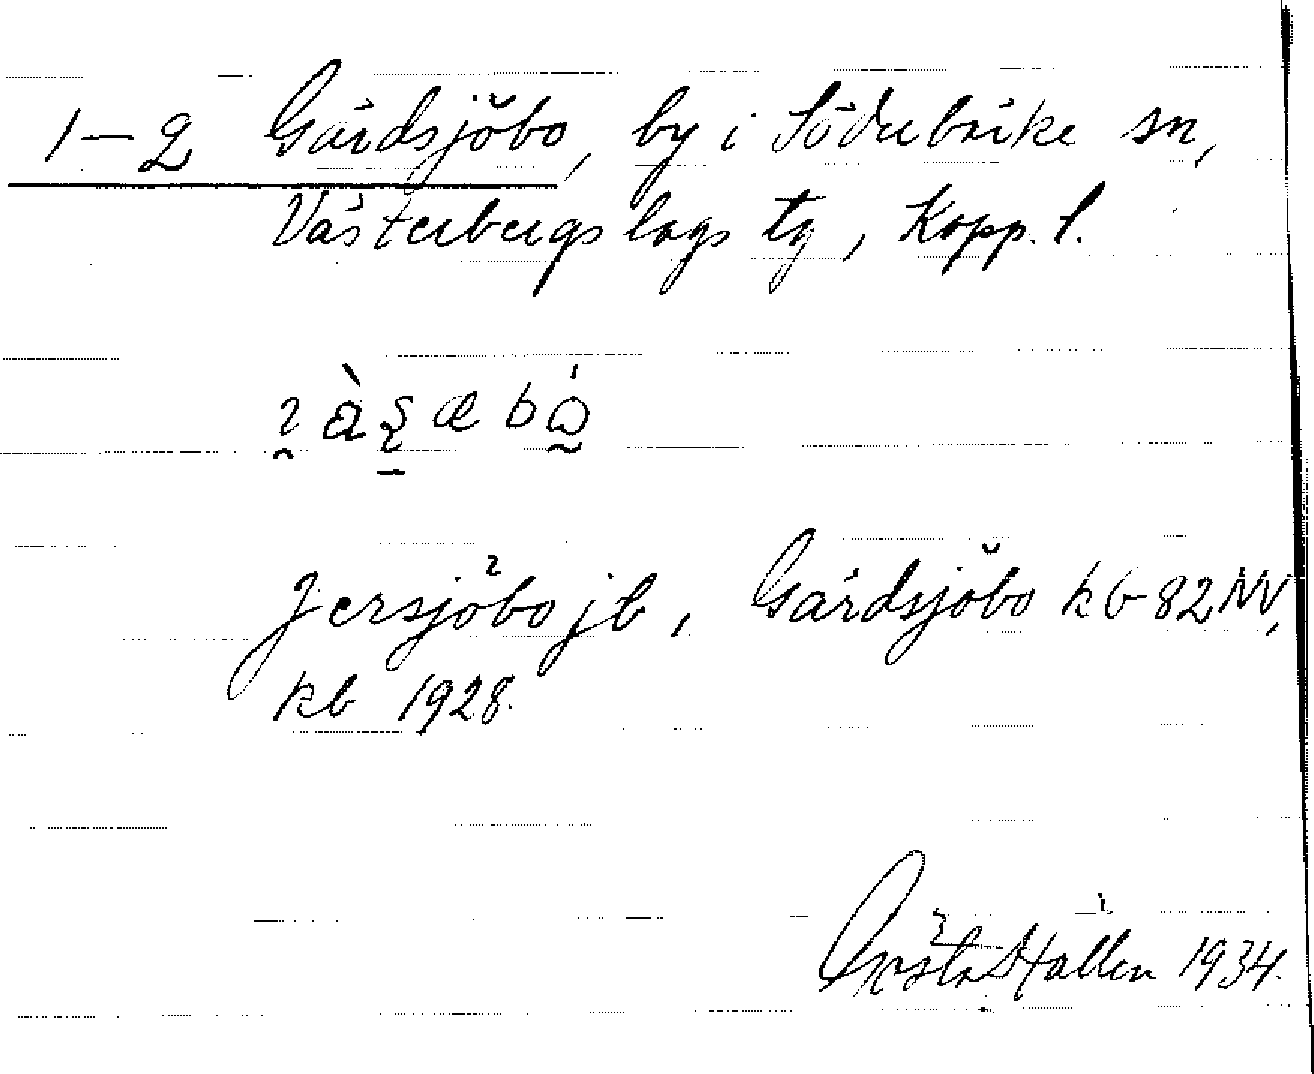 1–2 Gärdsjöbo, by i Söderbärke sn,
Västerbergslags tg, Kopp. l.
Jersjöbo jb, Gärdsjöbo kb 82 NV,
kb 1928.
Gösta Hallen 1934.